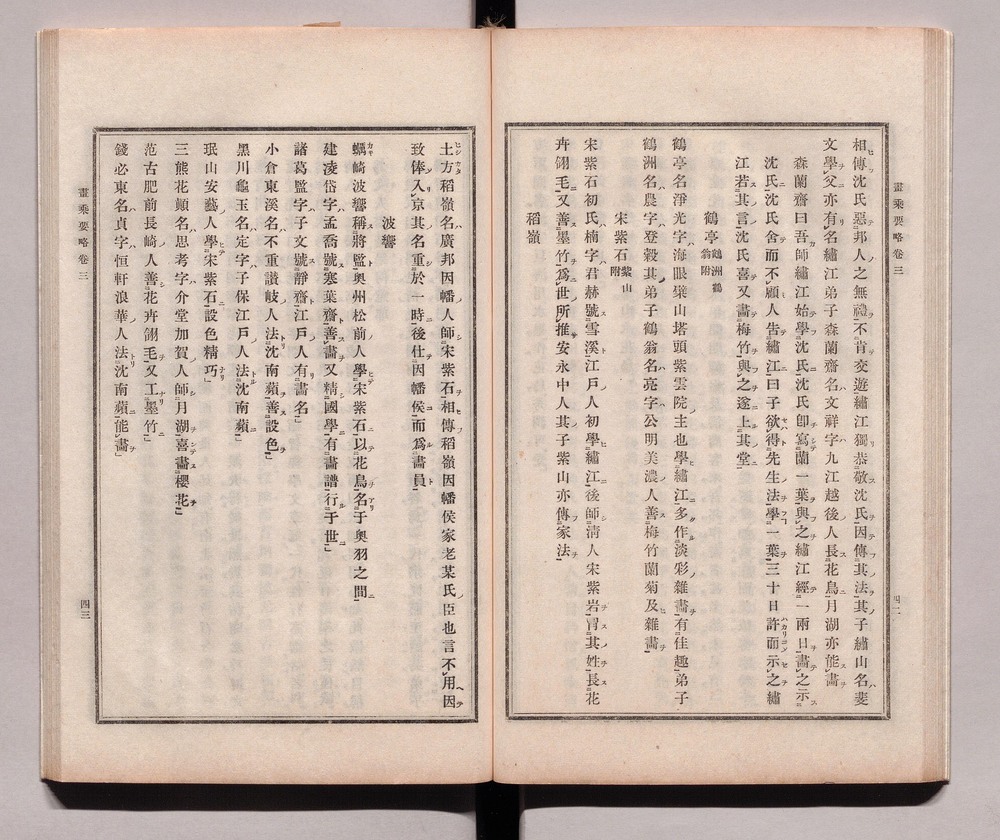 畫乘要略卷三
四二
相傳沈氏惡邦人之無禮不肯交遊繡江獨恭敬沈氏因傳其法其子繡山名斐
文學父亦有名繡江弟子森蘭齋名文祥字九江越後人長花鳥月湖亦能畫
森蘭齋曰吾師繡江始學沈氏沈氏卽寫蘭一葉與之繡江經一兩日畫之示
沈氏沈氏舍而不顧人告繡江曰子欲得先生法學一葉三十日許而示之繡
江若其言沈氏喜又畫梅竹與之遂上其堂
鶴亭 鶴洲鶴翁附
鶴亭名淨光字海眼檗山塔頭紫雲院主也學繡江多作淡彩雜畫有佳趣弟子
鶴洲名農字登穀其弟子鶴翁名亮字公明美濃人善梅竹蘭菊及雜畫
宋紫石 紫山附
宋紫石初氏楠字君赫號雪溪江戶人初學繡江後師淸人宋紫岩冐其姓長花
卉翎毛又善墨竹爲世所推安永中人其子紫山亦傳家法
稻嶺
土方稻嶺名廣邦因幡人師宋紫石相傳稻嶺因幡侯家老某氏臣也言不用因
致俸入京其名重於一時後仕因幡侯而爲畫員
波響
蠣崎波響稱將監奧州松前人學宋紫石以花鳥名于奧羽之間
建凌岱字孟喬號寒葉齋善畫又精國學有畫譜行于世
諸葛監字子文號靜齋江戶人有畫名
小倉東溪名不重讃岐人法沈南蘋善設色
黑川龜玉名定字子保江戶人法沈南蘋
珉山安藝人學宋紫石設色精巧
三熊花顚名思考字介堂加賀人師月湖喜畫櫻花
范古肥前長崎人善花卉翎毛又工墨竹
錢必東名貞字恒軒浪華人法沈南蘋能畫
畫乘要略卷三
四三